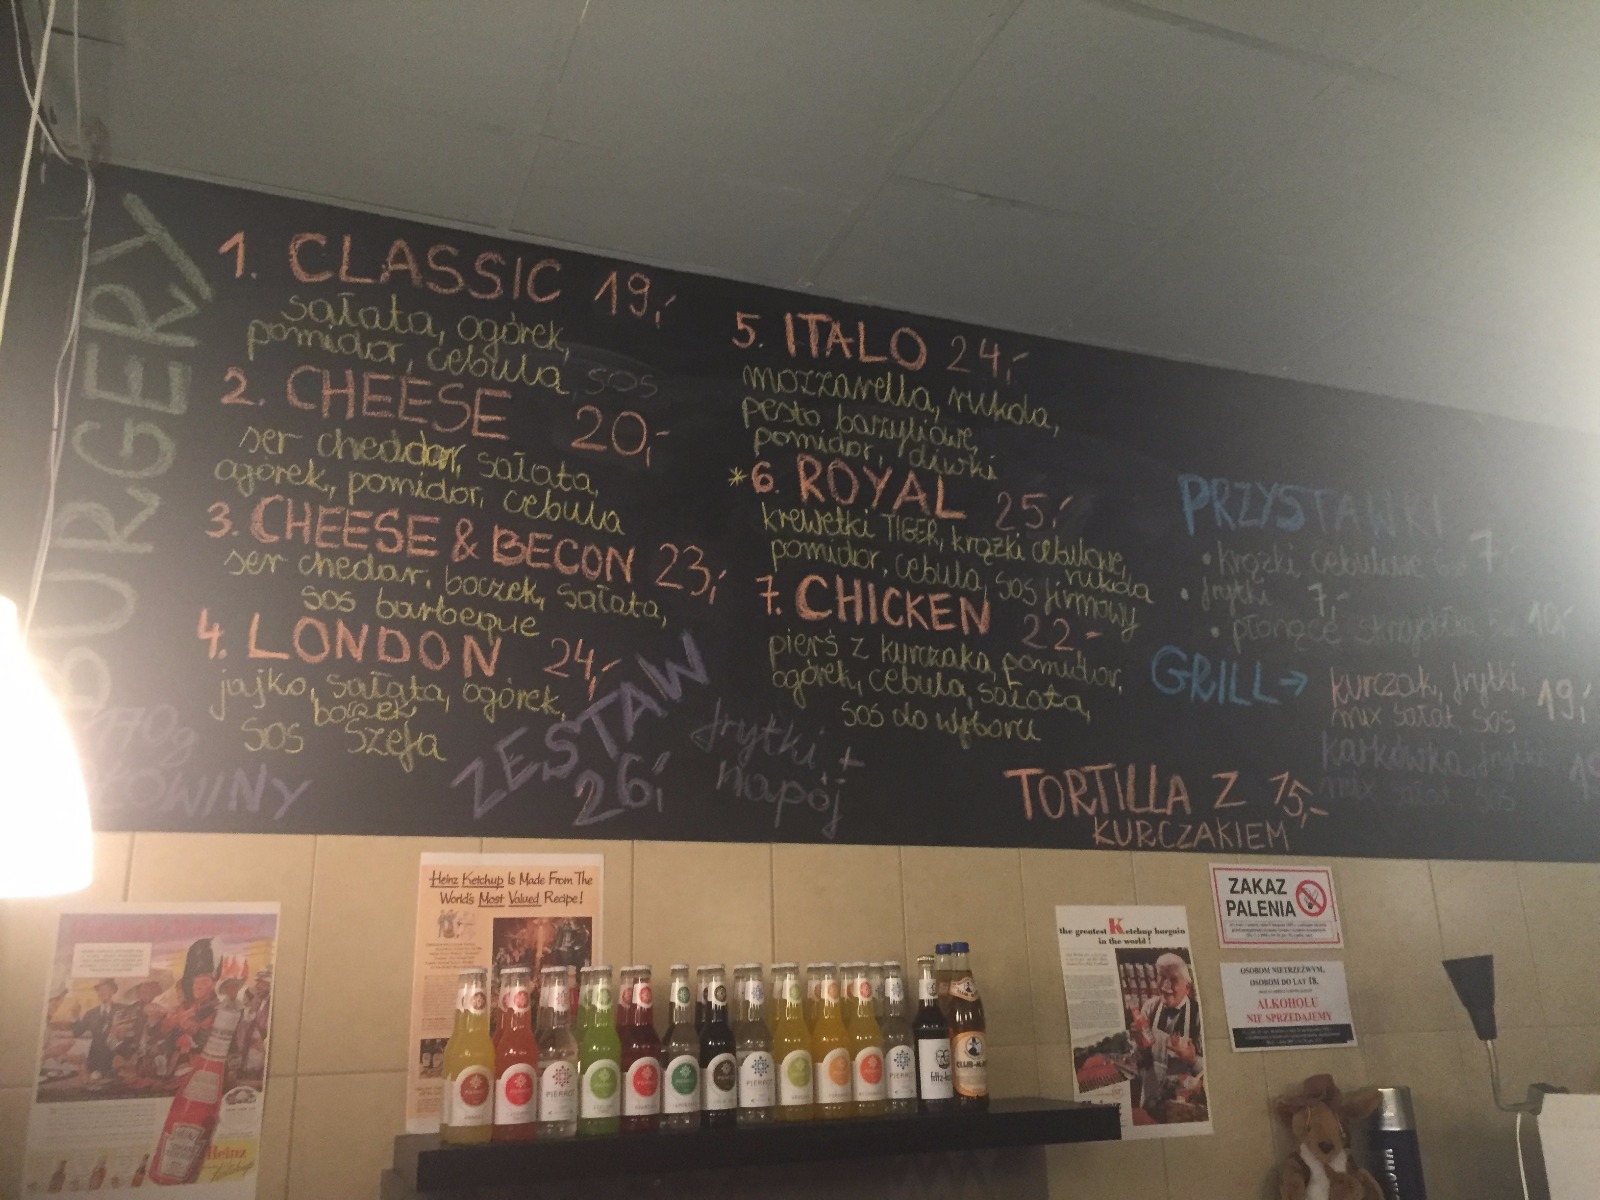 BURGERY
170g
1. CLASSIC 19,-
sałata, ogórek,
pomidor, cebula, sos
2. CHEESE 20,-
ser cheddar, sałata,
ogórek, pomidor, cebula
3. CHEESE & BECON 23,-
ser chedar, boczek, sałata,
sos barbeque
4. LONDON 24,-
jajko, sałata, ogórek,
boczek
sos szefa
ZESTAW
26,-
frytki +
napój
5. ITALO 24,-
mozzarella, rukola,
pesto bazyliowe,
pomidor, oliwki
*6. ROYAL 25,-
krewetki TIGER, krążki cebulowe,
rukola
pomidor, cebula, sos firmowy
7. CHICKEN 22,-
pierś z kurczaka, pomidor,
ogórek, cebula, sałata,
sos do wyboru
PRZYSTAWKI
• krążki cebulowe 7,-
• frytki 7,-
• płonące skrzydełka 10,-
GRILL →
kurczak, frytki, 19,-
mix sałat, sos
karkówka, frytki
mix sałat, sos
TORTILLA Z 15,-
KURCZAKIEM
Heinz Ketchup Is Made From The
World's Most Valued Recipe!
the greatest Ketchup bargain
in the world!
ZAKAZ
PALENIA
OSOBOM NIETRZEŹWYM,
OSOBOM DO LAT 18,
ALKOHOLU
NIE SPRZEDAJEMY
Heinz
PIERROT
fritz-kola
CLUB-MATE